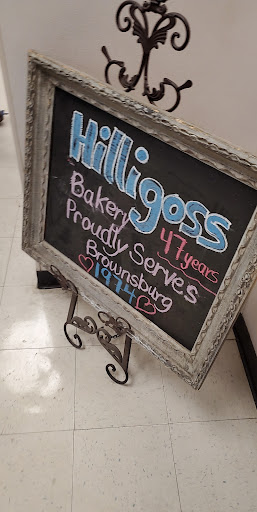 Hilligoss
47 years
Bakery
Proudly Serves
Brownsburg
1974